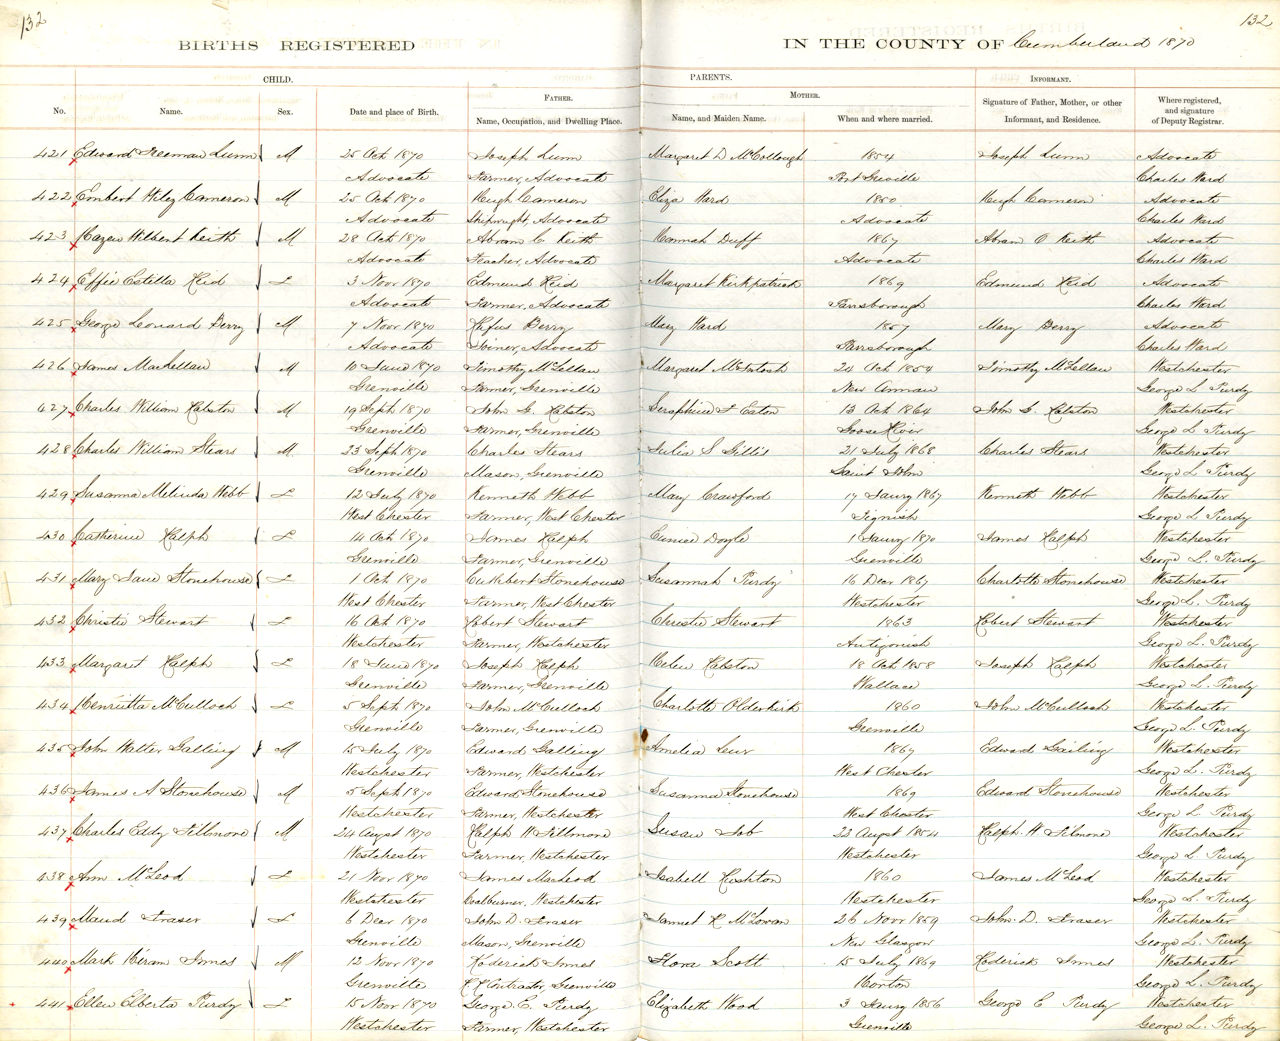 132
132
BIRTHS REGISTERED IN THE COUNTY OF Cumberland 1870
CHILD. PARENTS. INFORMANT.
FATHER. MOTHER.
No. Name. Sex. Date and place of Birth. Name, Occupation, and Dwelling Place. Name, and Maiden Name. When and where married. Signature of Father, Mother, or other Informant, and Residence. Where registered, and signature of Deputy Registrar.
421 Edward Freeman Lunn M 25 Oct 1870 Joseph Lunn Margaret D McCollough 1854 Joseph Lunn Advocate
Advocate Farmer, Advocate Port Greville Charles Ward
422 Wiley Cameron M 25 Oct 1870 Hugh Cameron Eliza Ward 1850 Hugh Cameron Advocate
Advocate Shipwright, Advocate Advocate Charles Ward
423 Hazen Wilbert Keith M 28 Oct 1870 Abram C Keith Hannah Duff 1867 Abram C Keith Advocate
Advocate Teacher, Advocate Advocate Charles Ward
424 Effie Estella Reid F 3 Novr 1870 Edmund Reid Margaret Kirkpatrick 1869 Edmund Reid Advocate
Advocate Farmer, Advocate Parrsborough Charles Ward
425 George Leonard Berry M 7 Novr 1870 Rufus Berry Mary Ward 1857 Mary Berry Advocate
Advocate Joiner, Advocate Parrsborough Charles Ward
426 James MacLellan M 10 June 1870 Timothy McLellan Margaret McIntosh 24 Oct 1854 Timothy McLellan Westchester
Grenville Farmer, Grenville New Annan George L Purdy
427 Charles William Ralston M 19 Sept 1870 John G. Ralston Seraphine F Eaton 13 Oct 1864 John G. Ralston Westchester
Grenville Farmer, Grenville Goose River George L Purdy
428 Charles William Stears M 23 Sept 1870 Charles Stears Julia S Gillis 21 July 1868 Charles Stears Westchester
Grenville Mason, Grenville Saint John George L Purdy
429 Susanna Melinda Webb F 12 July 1870 Kenneth Webb Mary Crawford 17 Jany 1867 Kenneth Webb Westchester
West Chester Farmer, West Chester Tignish George L Purdy
430 Catherine Ralph F 14 Oct 1870 James Ralph Eunice Doyle 1 Jany 1870 James Ralph Westchester
Grenville Farmer, Grenville Grenville George L. Purdy
431 Mary Jane Stonehouse F 1 Oct 1870 Cuthbert Stonehouse Susannah Purdy 16 Decr 1867 Charlotte Stonehouse Westchester
West Chester Farmer, West Chester Westchester George L. Purdy
432 Christie Stewart F 16 Oct 1870 Robert Stewart Christie Stewart 1863 Robert Stewart Westchester
Westchester Farmer, Westchester Antigonish George L. Purdy
433 Margaret Ralph F 18 June 1870 Joseph Ralph Helen Ralston 18 Oct 1858 Joseph Ralph Westchester
Grenville Farmer, Grenville Wallace George L. Purdy
434 Henrietta McCulloch F 5 Sept 1870 John McCulloch Charlotte Olderkirk 1860 John McCulloch Westchester
Grenville Farmer, Grenville Grenville George L. Purdy
435 John Walter Galling M 15 July 1870 Edward Galling Amelia 1867 Edward Gailing Westchester
Westchester Farmer, Westchester West Chester George L. Purdy
436 James A Stonehouse M 5 Sept 1870 Edward Stonehouse Susanna Stonehouse 1869 Edward Stonehouse Westchester
Westchester Farmer, Westchester West Chester George L. Purdy
437 Charles Eddy Fillmore M 24 August 1870 Ralph W Fillmore Susan 23 August 1854 Ralph. W Filmore Westchester
Westchester Farmer, Westchester Westchester George L. Purdy
438 Ann McLeod F 21 Novr 1870 James MacLeod Isabell Rushton 1860 James McLeod Westchester
Westchester Coalburner, Westchester Westchester George L. Purdy
439 Maud Fraser F 6 Decr 1870 John D. Fraser Jannet R McGowan 26 Novr 1859 John. D. Fraser Westchester
Grenville Mason, Grenville New Glasgow George L. Purdy
440 Mark Hiram Innes M 12 Novr 1870 Roderick Innes Flora Scott 15 July 1869 Roderick Innes Westchester
Grenville Contractor, Grenville Horton George L. Purdy
441 Ellen Elberta Purdy F 15 Novr 1870 George E. Purdy Elizabeth Wood 3 Jany 1856 George E Purdy Westchester
Westchester Farmer, Westchester Grenville George L. Purdy